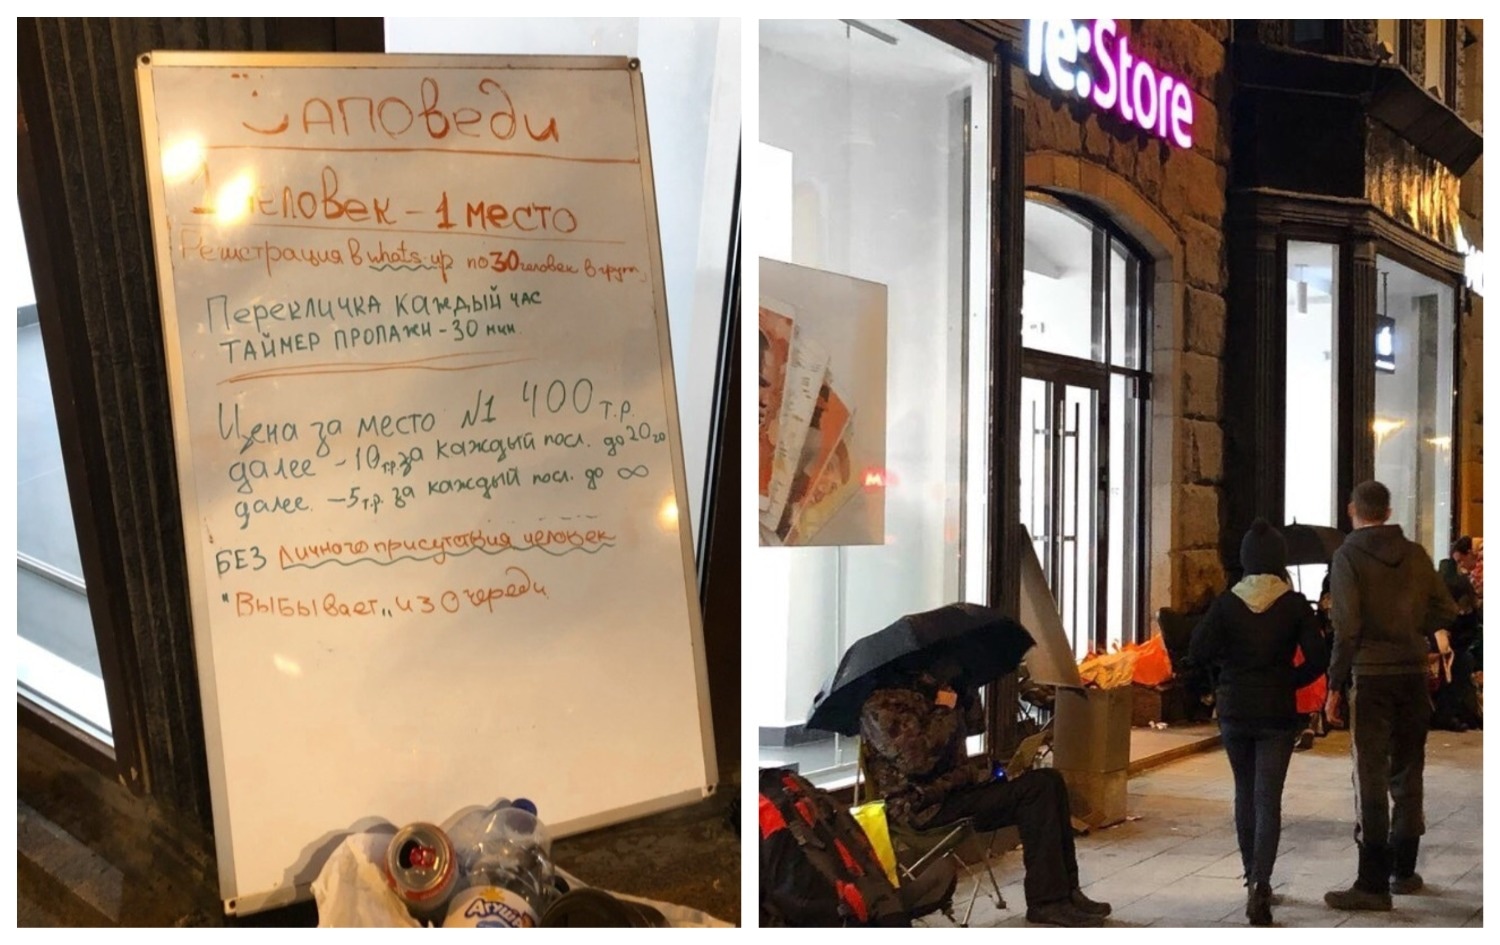 Заповеди
1 человек - 1 место
Регистрация в whats-up по 30 человек в групп.
Перекличка каждый час
ТАЙМЕР ПРОПАЖИ - 30 мин.
Цена за место №1 400 т.р.
далее -10 т.р. за каждый посл. до 20го
далее. -5 т.р. за каждый посл. до ∞
БЕЗ личного присутствия человек
"Выбывает" из очереди
Агуша
re:Store